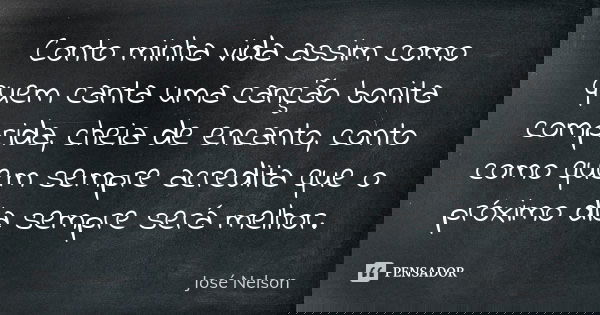 Conto minha vida assim como
quem canta uma canção bonita
comprida, cheia de encanto, conto
como quem sempre acredita que o
próximo dia sempre será melhor.
José Nelson
PENSADOR